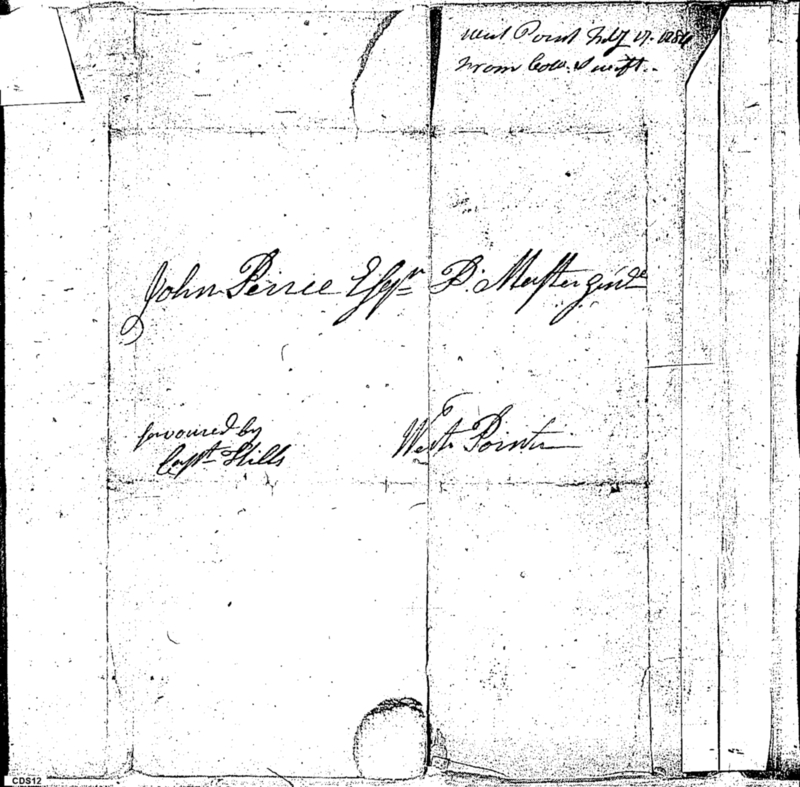 West Point Feby 17. 1784
From Colo. Swift.
John Pierce Esqr P. Master Genl
favoured by
Capt Stills
West Point
CDS12